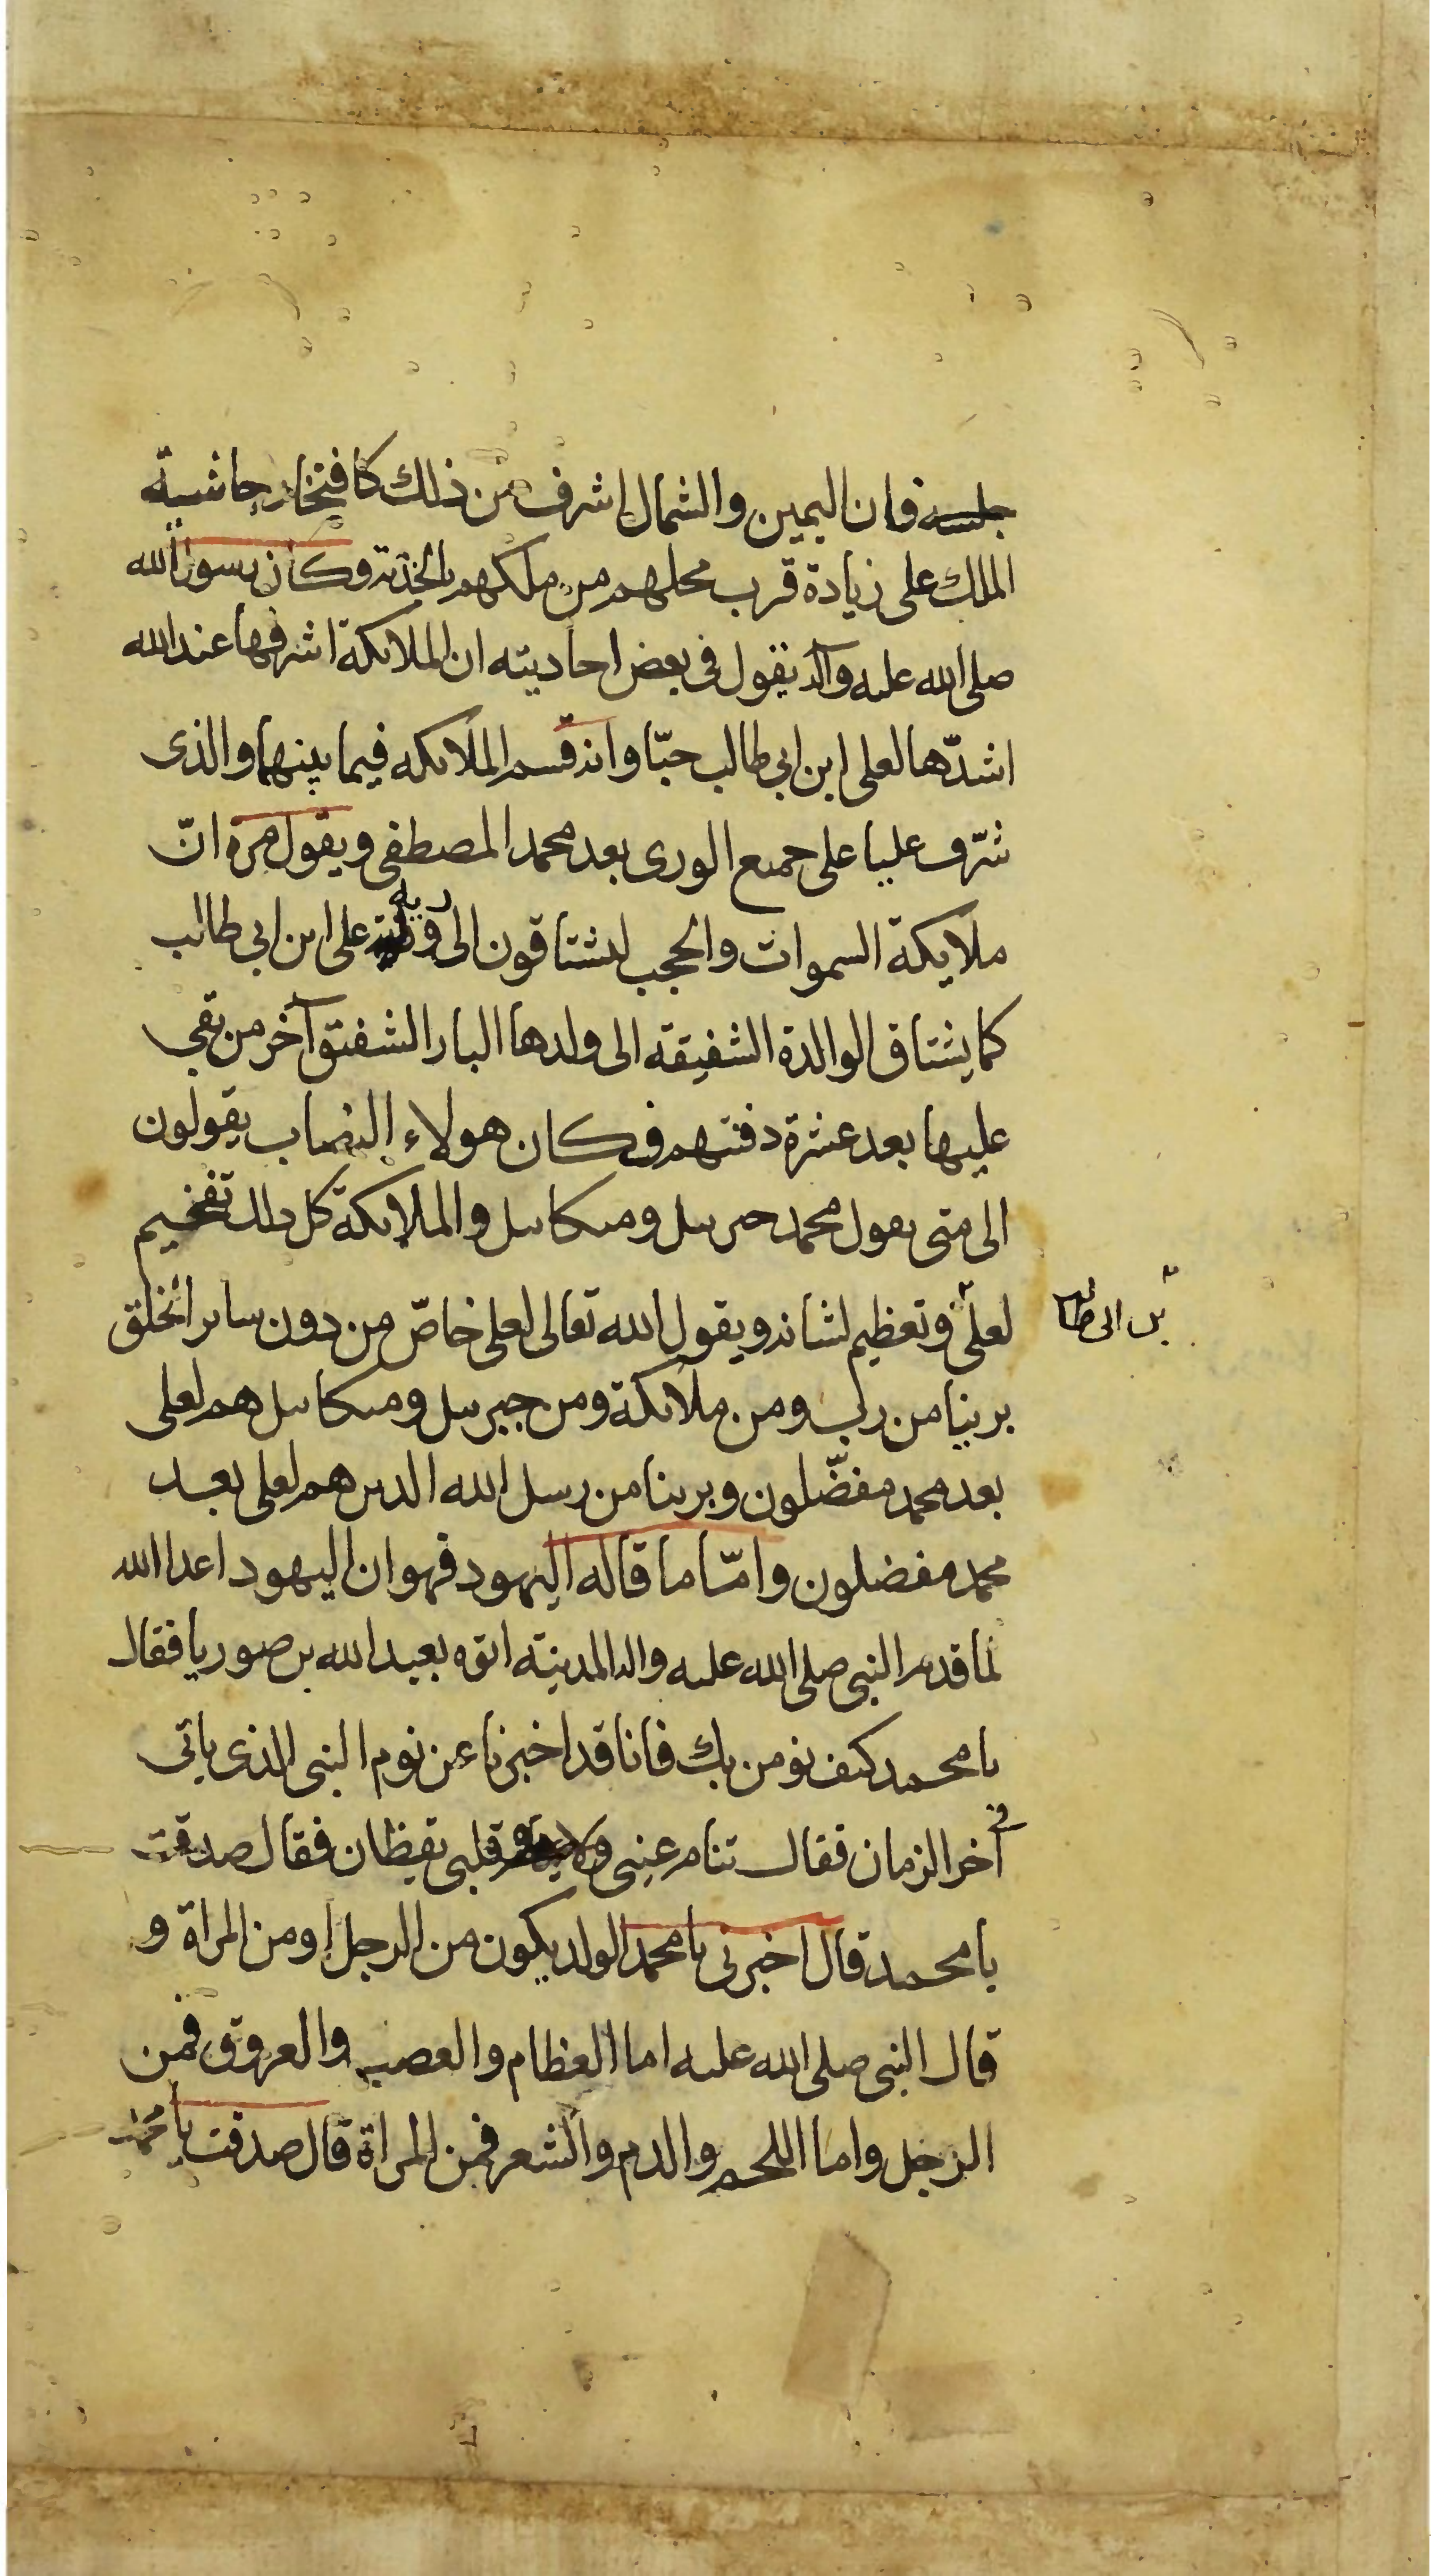 جلسه فان اليمين والشمال اشرف من ذلك كافتخار حاشية
الملك على زيادة قرب محلهم من ملكهم وكان رسول الله
صلى الله عليه وآله يقول في بعض احاديثه ان الملائكة اشرفها عند الله
اشدّها لعلى ابن ابي طالب حبّا وانه قسم الملائكه فيما بينهما والذى
شرّف عليا على جميع الورى بعد محمد المصطفى ويقول مرة انّ
ملايكة السموات والحجب ليشتاقون الى رويه على ابن ابي طالب
كما يشتاق الوالدة الشفيقه الى ولدها البار الشفيق آخر من بقي
عليها بعد عشرة دفنتهم فكان هولاء النصاب يقولون
الى متى يقول محمد جبرئيل وميكائيل والملائكة كل ذلك تفخيم
لعلى وتعظيم لشانه ويقول الله تعالى لعلى خاصّ من دون ساير الخلق
بن ابى طالب
برينا من رب ومن ملائكة ومن جبرئيل وميكائيل هم لعلى
بعد محمد مفضّلون وبرينا من رسل الله الذين هم لعلى بعد
محمد مفضلون وامّا ما قاله اليهود فهو ان اليهود اعدا الله
لما قدم النبي صلى الله عليه واله المدينة اتوه بعبد الله بن صوريا فقال
يا محمد كيف نومن بك فانا قد اخبرنا عن نوم النبي الذى ياتى
في آخر الزمان فقال تنام عيني وقلبى يقظان فقال صدقت
يا محمد قال اخبرنى يا محمد الولد يكون من الرجل او من المراة و
قال النبي صلى الله عليه اما العظام والعصب والعروق فمن
الرجل واما اللحم والدم والشعر فمن المراة قال صدقت يا محمد